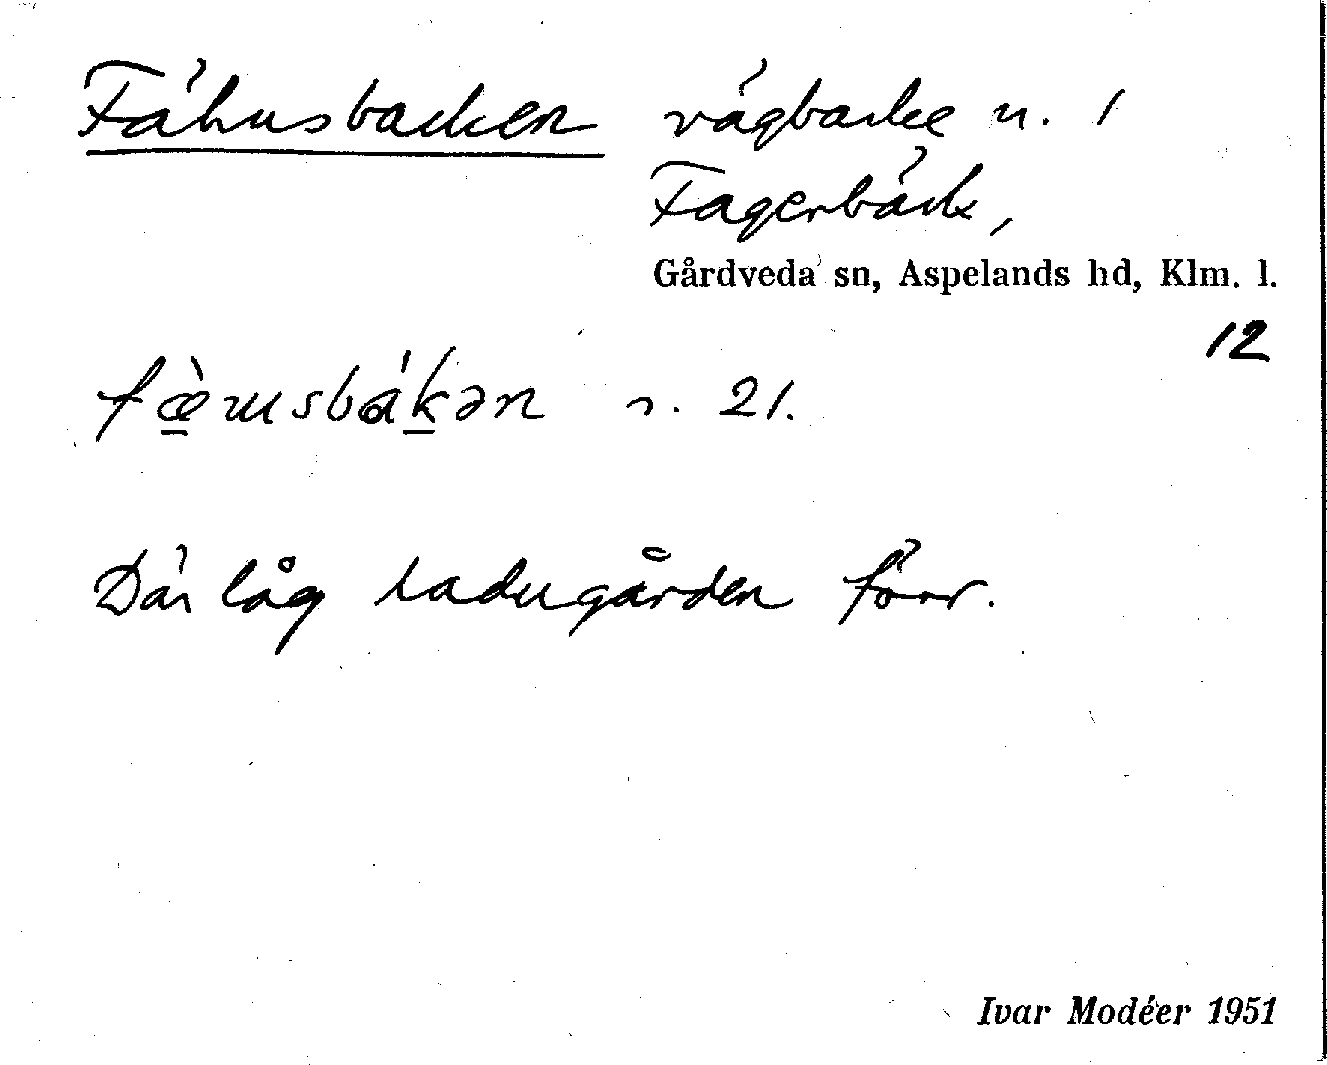 Fähusbacken vägbacke n. 1
Fagerbäck,
Gårdveda sn, Aspelands hd, Klm. l.
12
s. 21.
Där låg ladugården förr.
Ivar Modéer 1951